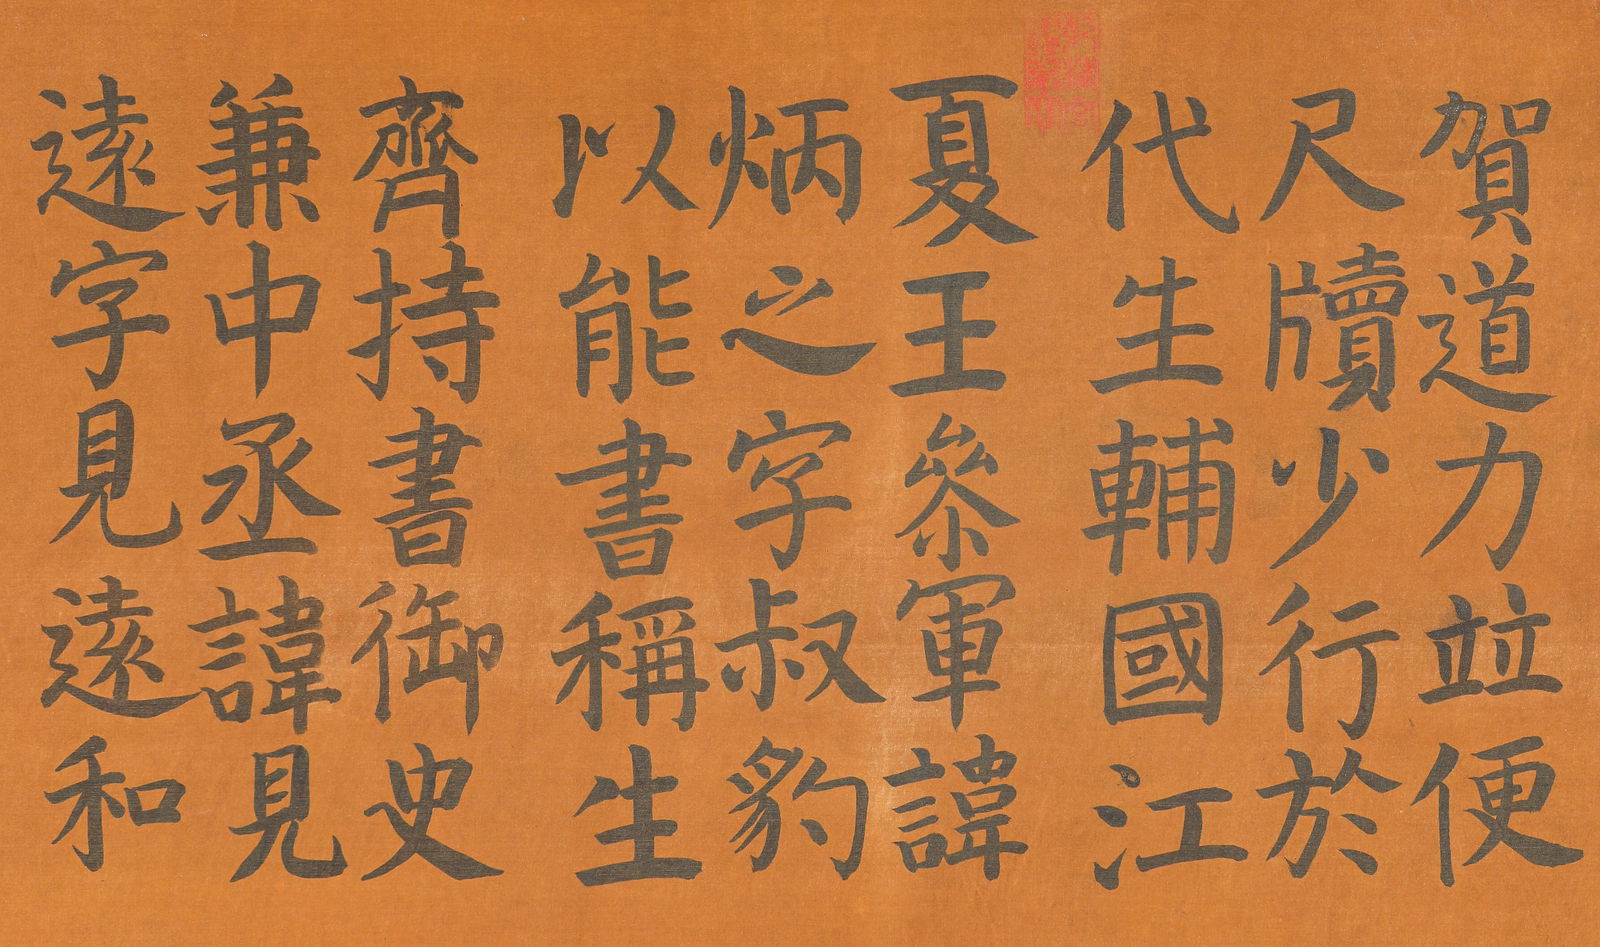 賀道力竝便
尺牘少行於
代生輔國江
夏王叅軍諱
炳之字叔豹
以能書稱生
齊持書御史
兼中丞諱見
遠字見遠和